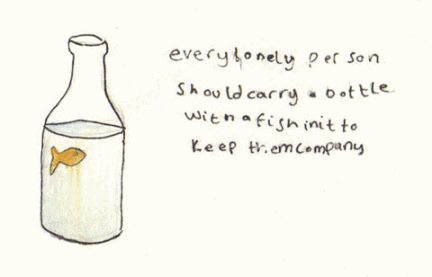 every lonely person
should carry a bottle
with a fish in it to
keep them company